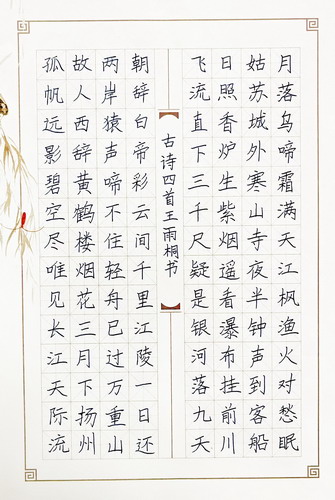 月落乌啼霜满天江枫渔火对愁眠
姑苏城外寒山寺夜半钟声到客船
日照香炉生紫烟遥看瀑布挂前川
飞流直下三千尺疑是银河落九天
古诗四首王雨桐书
朝辞白帝彩云间千里江陵一日还
两岸猿声啼不住轻舟已过万重山
故人西辞黄鹤楼烟花三月下扬州
孤帆远影碧空尽唯见长江天际流